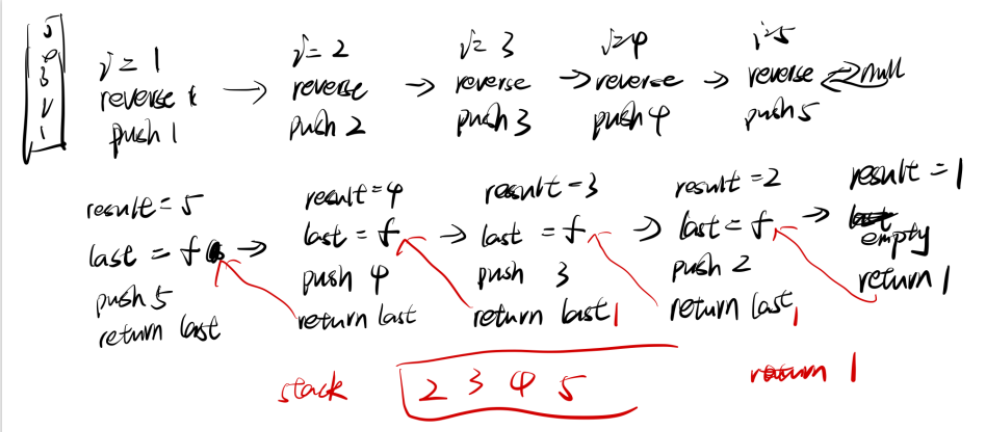 5
4
3
2
1
i = 1
reverse
push 1
i = 2
reverse
push 2
i = 3
reverse
push 3
i = 4
reverse
push 4
i = 5
reverse
push 5
null
result = 5
last = f
push 5
return last
result = 4
last = f
push 4
return last
result = 3
last = f
push 3
return last 1
result = 2
last = f
push 2
return last 1
result = 1
empty
return 1
return 1
stack
2 3 4 5